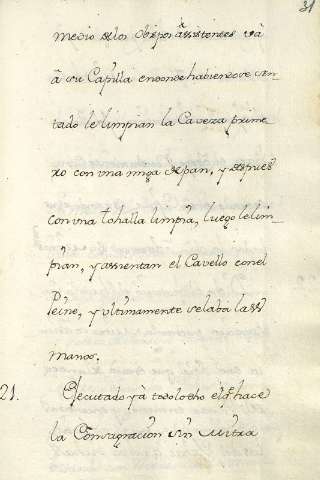 31
medio de los Obispos asistentes vá
á su Capilla endonde haviendose cen-
tado le limpian la Caveza prime
ro con una miga de pan, y despues
con una tohalla limpia, luego le lim-
pian, y asientan el Cavello con el
Peine, y ultimamente se laba las
manos.
21. Ejecutado yá todo lo dho el q.e hace
la Consagracion sin Mitra